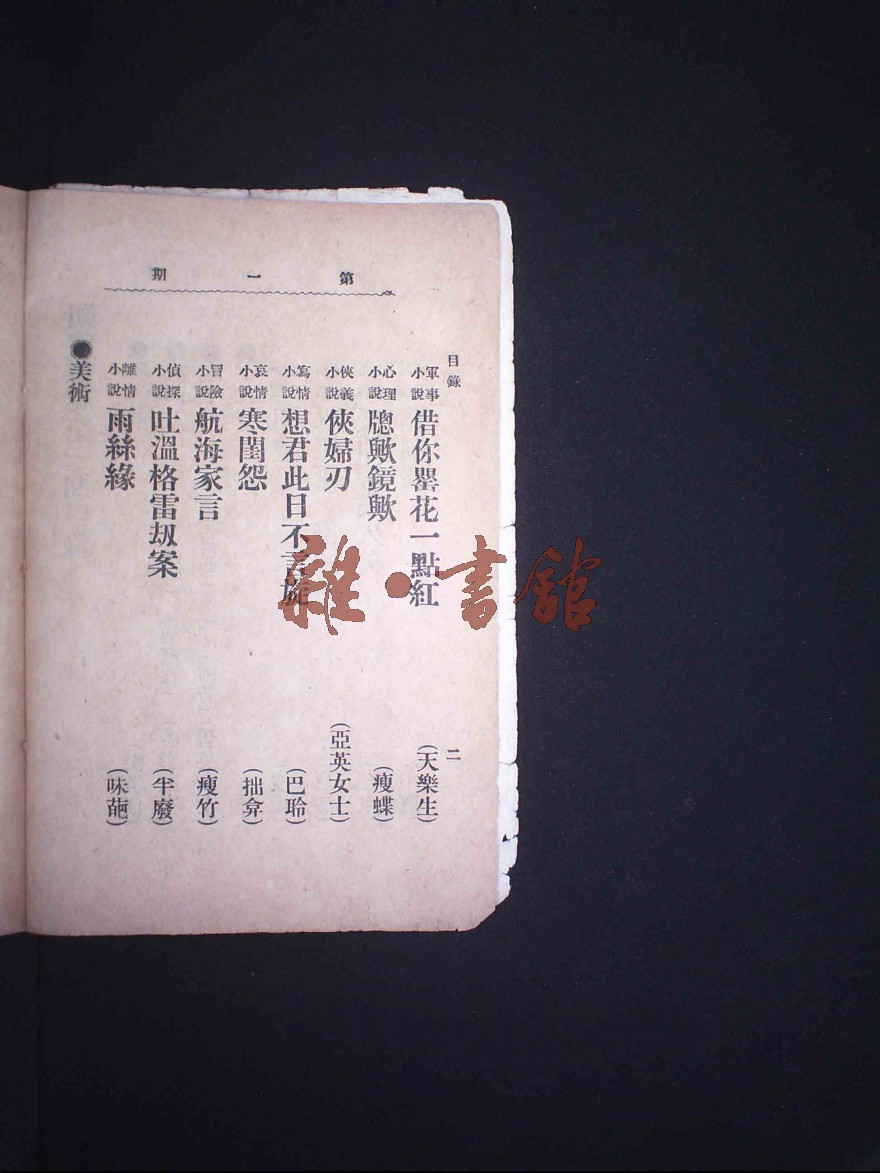 第一期
目錄 二
軍事小說 借你罌花一點紅 (天樂生)
心理小說 牕歟鏡歟 (瘦蝶)
俠義小說 俠婦刃 (亞英女士)
寫情小說 想君此日不言旋 (巴聆)
哀情小說 寒閨怨 (拙弇)
冒險小說 航海家言 (瘦竹)
偵探小說 吐溫格雷刼案 (半廢)
離情小說 雨絲緣 (味葩)
●美術
雜·書館